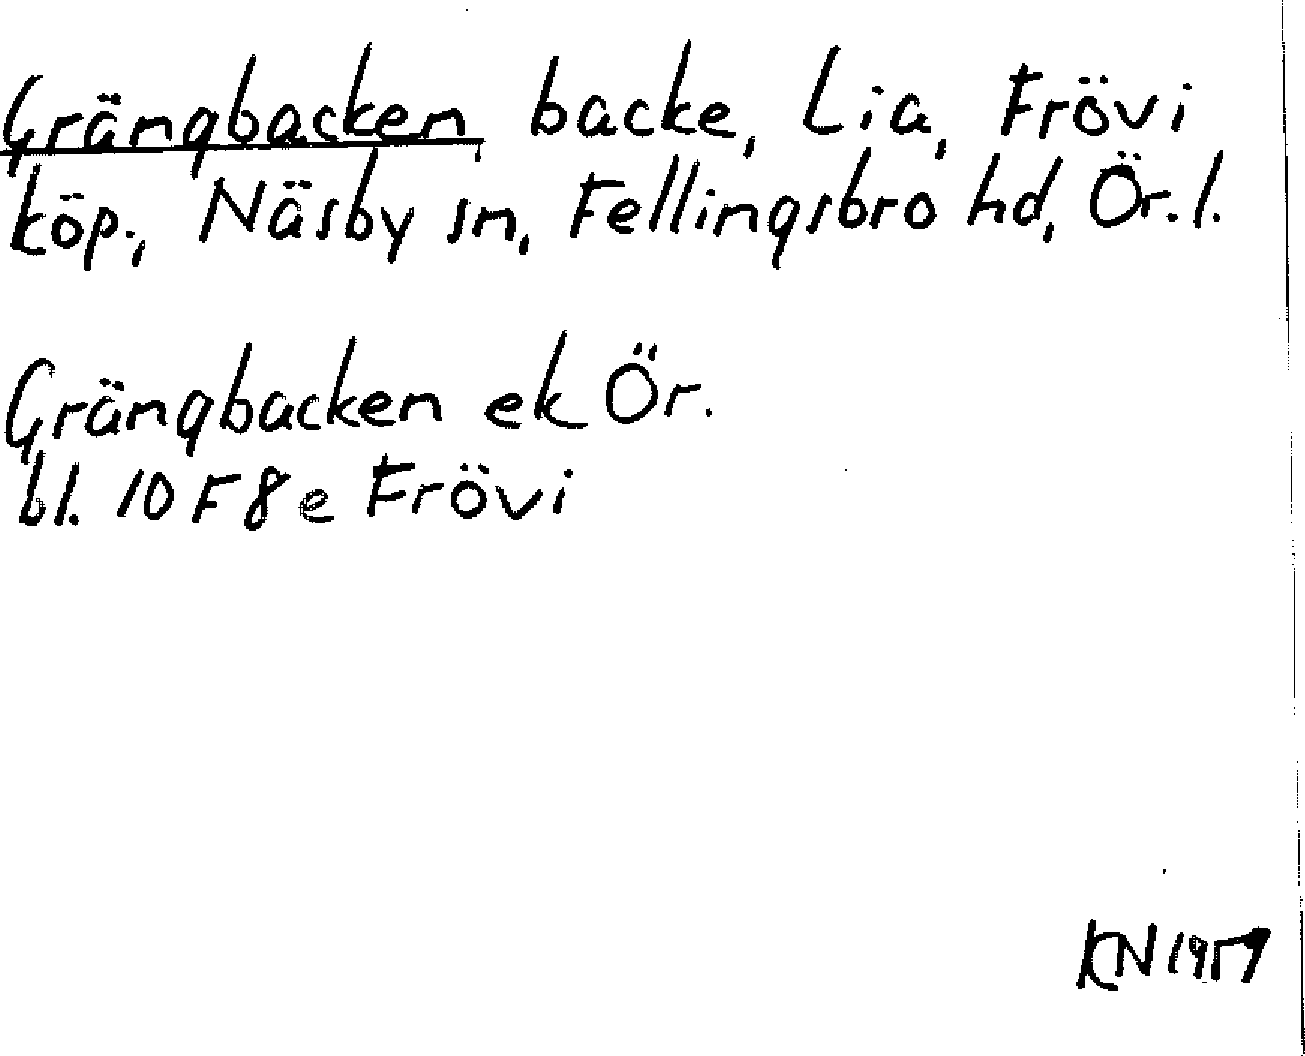 Grängbacken, backe, Lia, Frövi
köp., Näsby sn, Fellingsbro hd, Ör. l.
Grängbacken ek Ör.
bl. 10 F 8 e Frövi